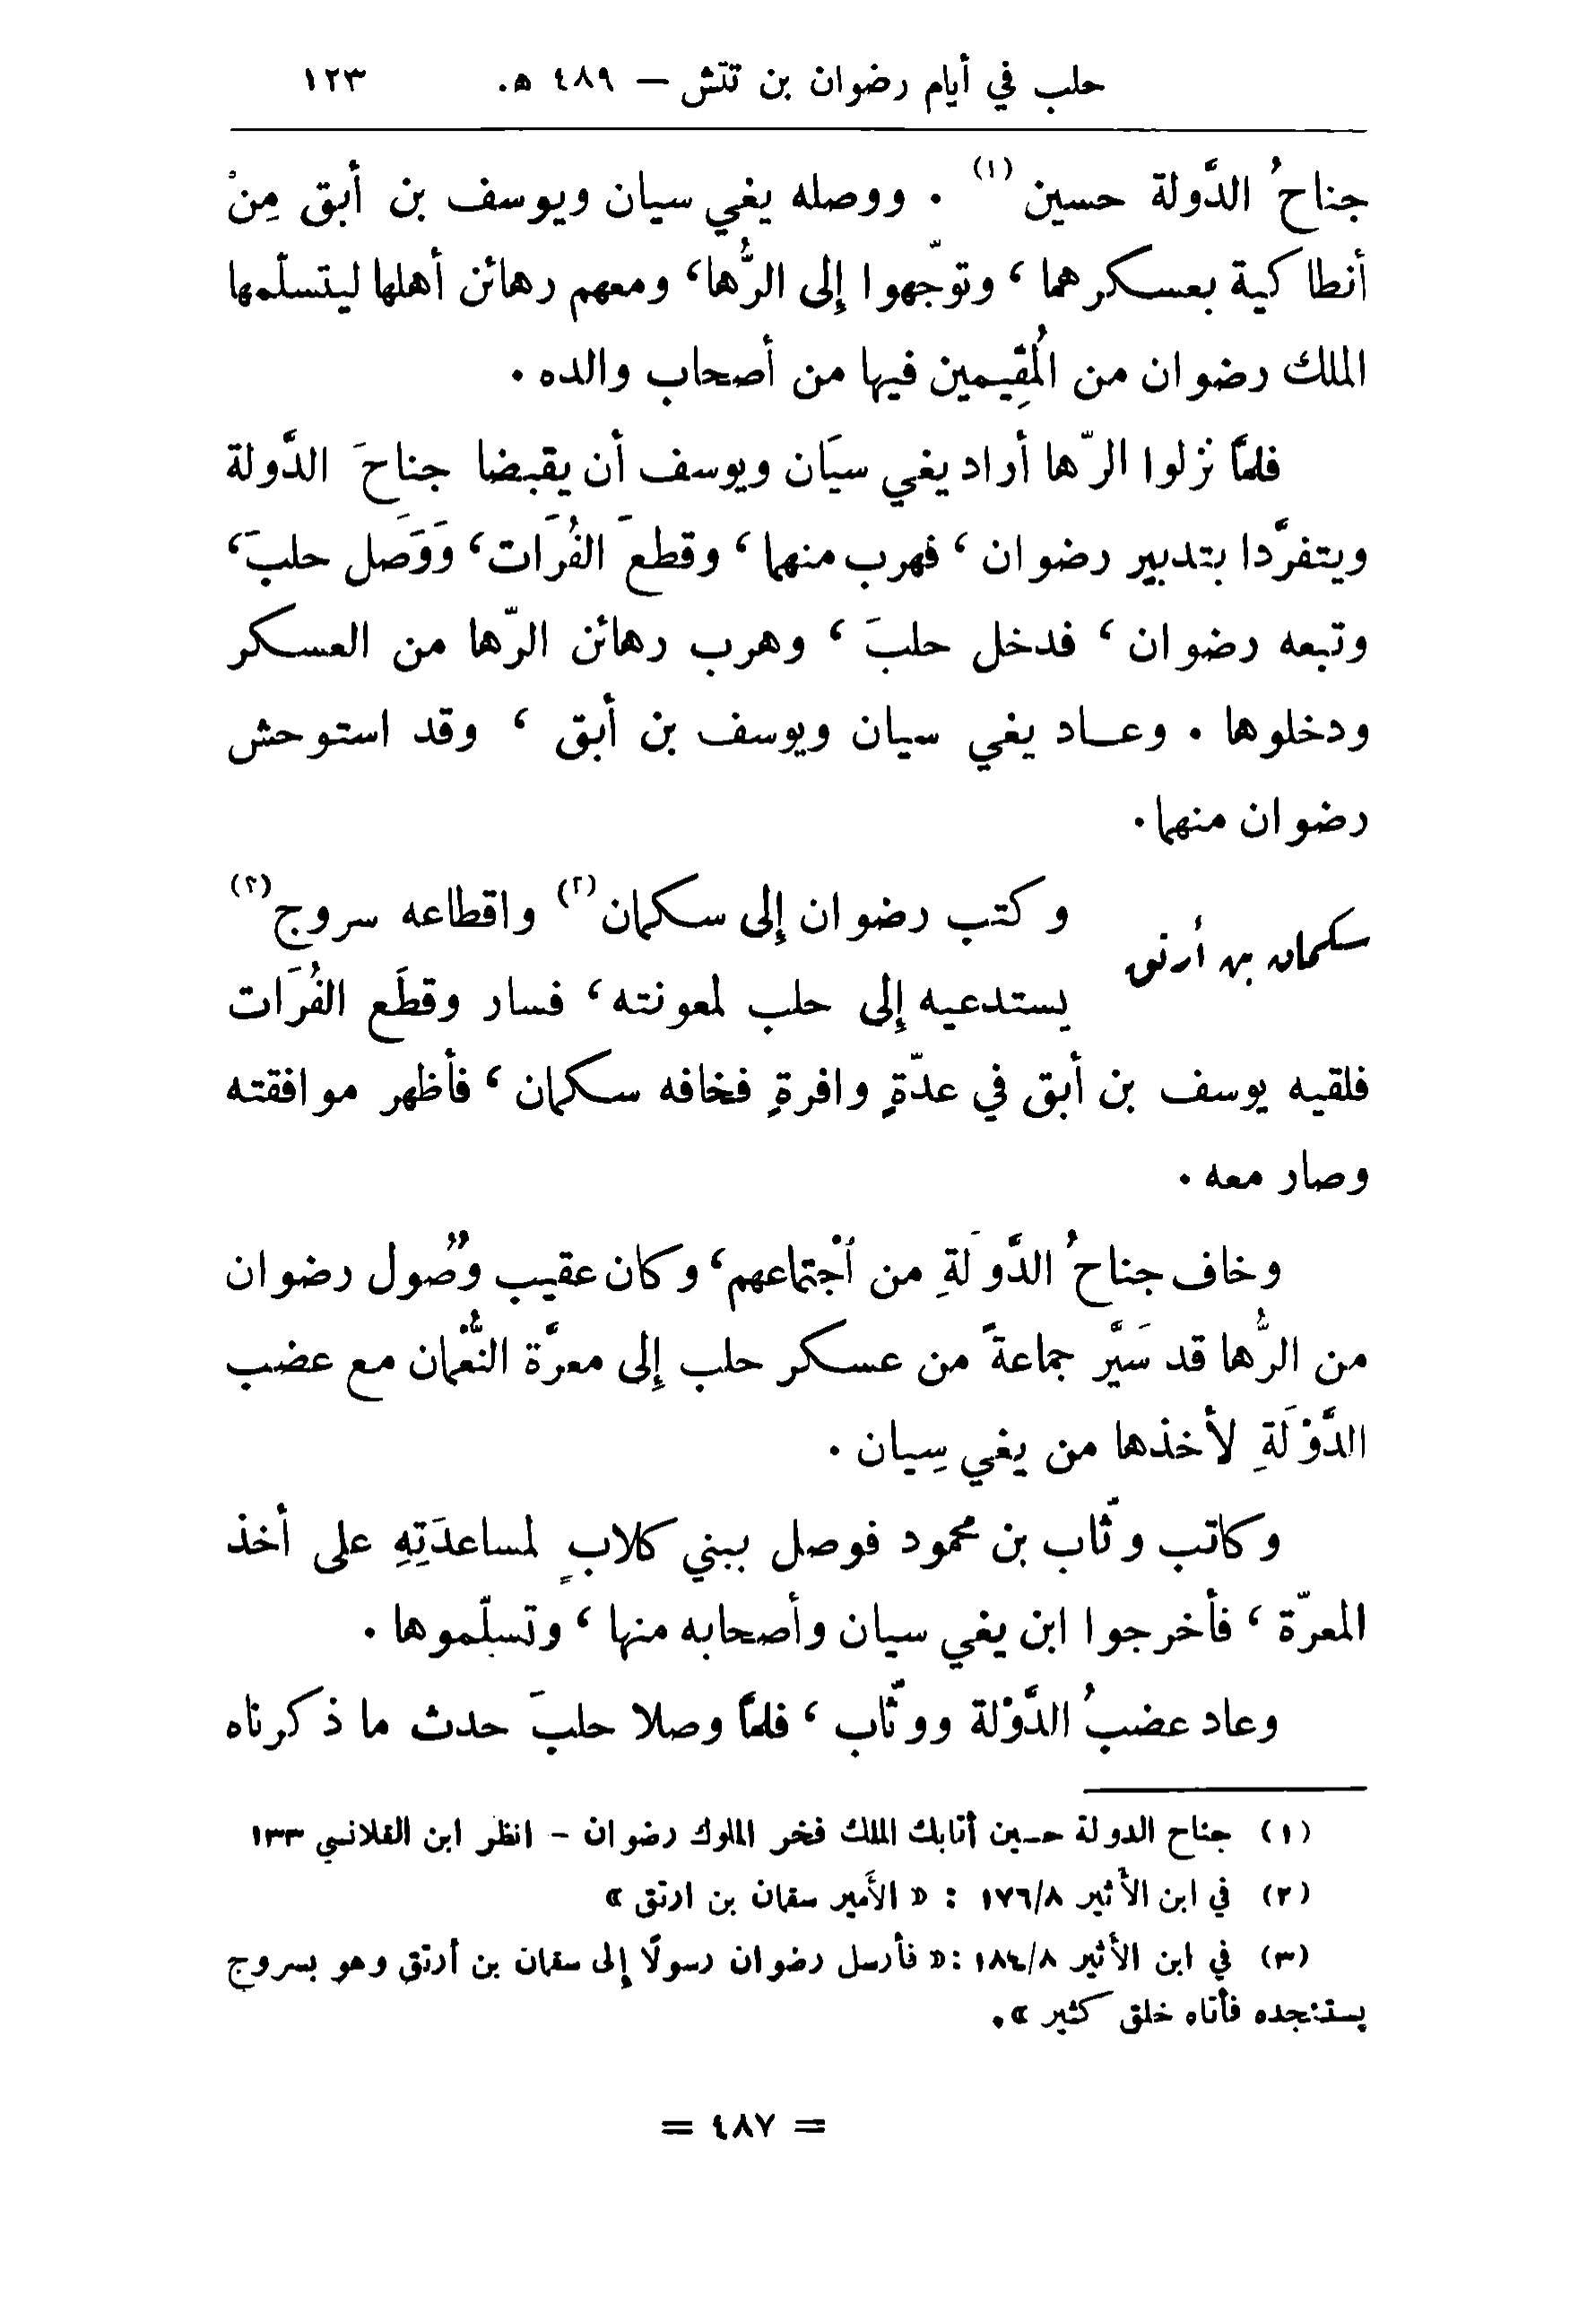 حلب في أيام رضوان بن تتش — ٤٨٩ ه. ١٢٣
جناحُ الدَّولة حسين (١) . ووصله يغي سيان ويوسف بن أبق مِنْ
أنطاكية بعسكرهما ، وتوّجهوا إلى الرُّها، ومعهم رهائن أهلها ليتسلّمها
الملك رضوان من المُقِيمين فيها من أصحاب والده .
فلمَّا نزلوا الرّها أراد يغي سيَان ويوسف أن يقبضا جناحَ الدَّولة
ويتفرَّدا بتدبير رضوان ، فهرب منهما ، وقطعَ الفُرَات، وَوَصَل حلبَ،
وتبعه رضوان ، فدخل حلبَ ، وهرب رهائن الرّها من العسكر
ودخلوها . وعاد يغي سيان ويوسف بن أبق ، وقد استوحش
رضوان منهما.
سكمان بن أرتق
وكتب رضوان إلى سكمان (٢) واقطاعه سروج (٣)
يستدعيه إلى حلب لمعونته ، فسار وقطَع الفُرَات
فلقيه يوسف بن أبق في عدّةٍ وافرةٍ فخافه سكمان ، فأظهر موافقته
وصار معه .
وخاف جناحُ الدَّولَةِ من اجْتماعهم، وكان عقيب وُصول رضوان
من الرُّها قد سَيَّر جماعةً من عسكر حلب إلى معرَّة النُّعْمان مع عضب
الدَّوْلَةِ لأخذها من يغي سِيان .
وكاتب وثّاب بن محمود فوصل ببني كلابٍ لمساعدَتِهِ على أخذ
المعرّة ، فأخرجوا ابن يغي سيان وأصحابه منها ، وتسلّموها .
وعاد عضبُ الدَّوْلة ووثّاب ، فلمَّا وصلا حلبَ حدث ما ذكرناه
(١) جناح الدولة حسين أتابك الملك فخر الملوك رضوان – انظر ابن القلانسي ١٣٣
(٢) في ابن الأثير ١٧٦/٨ : « الأمير سقمان بن ارتق »
(٣) في ابن الأثير ١٨٤/٨ :« فأرسل رضوان رسولًا إلى سقمان بن أرتق وهو بسروج
يستنجده فأتاه خلق كثير ».
= ٤٨٧ =